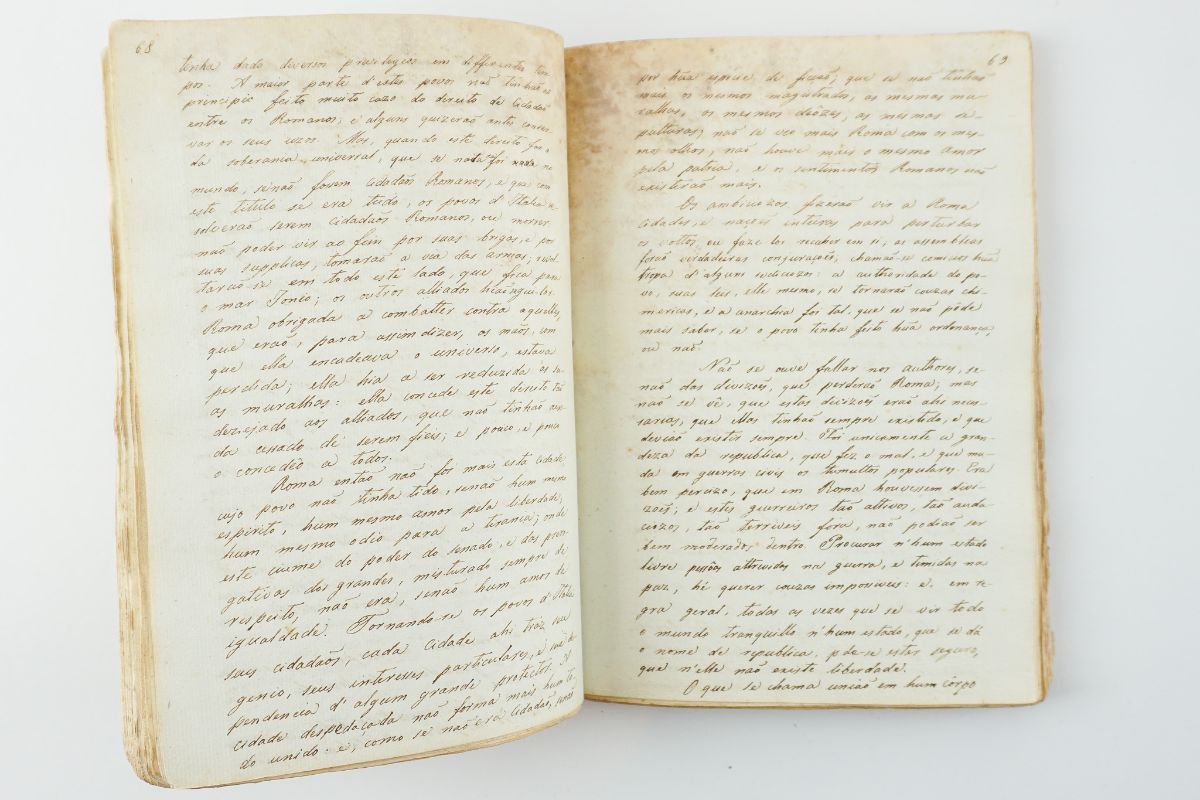 68
tinha dado diversos privilegios em differentes tem-
pos. A maior parte d'estes povos não tinhão ao
principio feito muito cazo do direito de Cidadão
entre os Romanos; e alguns quizerão antes conser-
var os seus uzos. Mas, quando este direito foi o
da soberania universal, que se nada foi no
mundo, senão fossem Cidadãos Romanos, e que com
este titulo se era tudo, os povos d'Italia re-
solverão serem cidadãos Romanos, ou morrer.
não poder vir ao fim por suas brigas, e por
suas supplicas, tomarão a via das armas; revol-
tarão-se em todo este lado, que fica para
o mar Jonio; os outros alliados hião segui-los.
Roma obrigada a combatter contra aquelles,
que erão, para assim dizer, as mãos, com
que ella encadeava o universo, estava
perdida; ella hia a ser reduzida ás su-
as muralhas: ella concede este direito tão
dezejado aos alliados, que não tinhão ain-
da cessado de serem fieis; e pouco, e pouco
o concedêo a todos.
Roma então não foi mais esta cidade,
cujo povo não tinha tido, senão hum mesmo
espirito, hum mesmo amor pela liberdade,
hum mesmo odio para a tirania; onde
este ciume do poder do senado, e das prero-
gativas dos grandes, misturado sempre de
respeito, não era, senão hum amor de
igualdade. Tornando-se os povos d'Italia
seus cidadãos, cada cidade ahi traz seu
genio, seus interesses particulares, e sua de-
pendencia d'algum grande protector. A
cidade despedaçada não forma mais hum to-
do unido: e, como se não era Cidadão, senão
69
por hũa especie de ficsão; que se não tinhão
mais os mesmos magistrados, as mesmas mu-
ralhas, os mesmos deòzes, as mesmas se-
pulturas, não se vio mais Roma com os mes-
mos olhos, não houve mais o mesmo amor
pela patria, e os sentimentos Romanos não
existirão mais.
Os ambiciozos fizerão vir a Roma
cidades, e nações inteiras para perturbar
os vottos, ou faze-los recaher em si; as assembleas
forão verdadeiras conjurações; chamão-se comicios hũa
tropa d'alguns sediciozos: a authoridade do po-
vo, suas leis, elle mesmo, se tornarão couzas chi-
mericas, e a anarchia foi tal, que se não pôde
mais saber, se o povo tinha feito hũa ordenança,
ou não.
Não se ouve fallar nos authores, se-
não das divizões, que perderão Roma; mas
não se vê, que estas divizões erão ahi neces-
sarias, que ellas tinhão sempre existido, e que
devião existir sempre. Foi unicamente a gran-
deza da republica, que fez o mal, e que mu-
da em guerras civis os tumultos populares. Era
bem percizo, que em Roma houvessem divi-
zões; e estes guerreiros tão altivos, tão auda-
ciozos, tão terriveis fora, não podião ser
bem moderados dentro. Procurar n'hum estado
livre pessoas attrevidas na guerra, e timidas na
paz, hé querer couzas impossiveis: e, em re-
gra geral, todas as vezes que se vir todo
o mundo tranquillo n'hum estado, que se dá
o nome de republica, póde-se estar seguro,
que n'elle não existe liberdade.
O que se chama união em hum côrpo